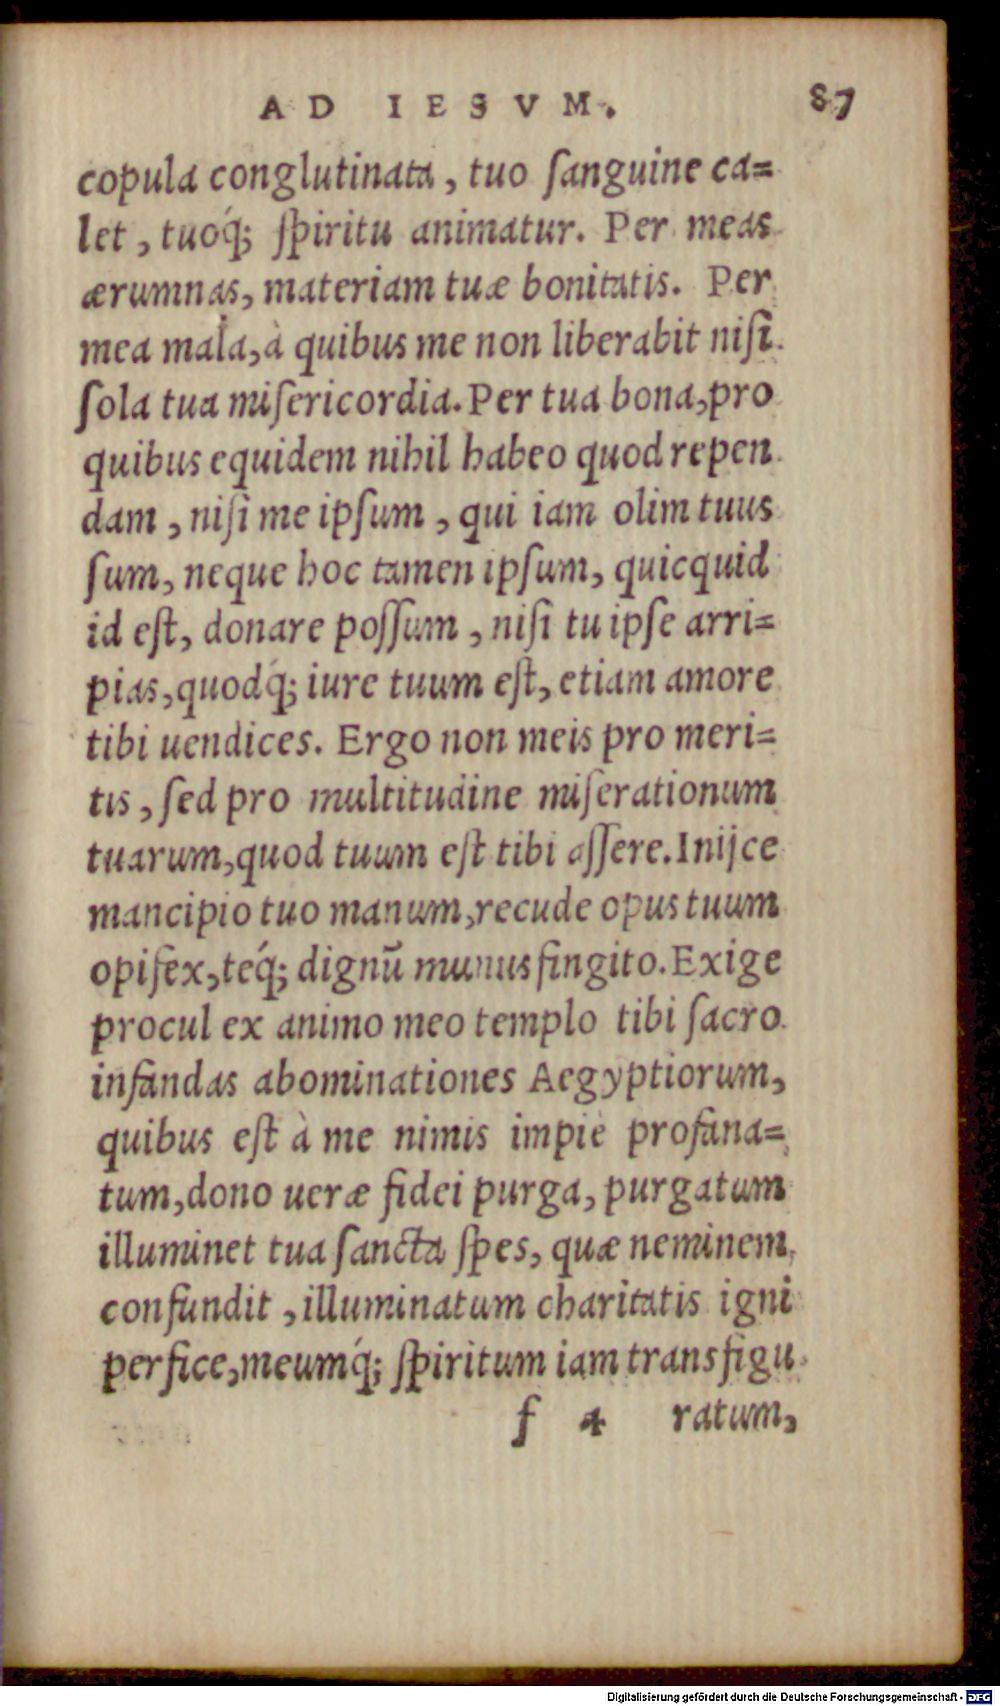 AD IESVM. 87
copula conglutinata, tuo ſanguine ca=
let, tuoq́; ſpiritu animatur. Per meas
ærumnas, materiam tuæ bonitatis. Per
mea mala, à quibus me non liberabit niſi
ſola tua miſericordia. Per tua bona, pro
quibus equidem nihil habeo quod repen
dam, niſi me ipſum, qui iam olim tuus
ſum, neque hoc tamen ipſum, quicquid
id eſt, donare poſſum, niſi tu ipſe arri=
pias, quodq́; iure tuum eſt, etiam amore
tibi uendices. Ergo non meis pro meri=
tis, ſed pro multitudine miſerationum
tuarum, quod tuum eſt tibi aſſere. Inijce
mancipio tuo manum, recude opus tuum
opifex, teq́; dignũ munus fingito. Exige
procul ex animo meo templo tibi ſacro
infandas abominationes Aegyptiorum,
quibus eſt à me nimis impiè profana=
tum, dono ueræ fidei purga, purgatum
illuminet tua ſancta ſpes, quæ neminem
confundit, illuminatum charitatis igni
perfice, meumq́; ſpiritum iam transfigu
f 4 ratum,
Digitalisierung gefördert durch die Deutsche Forschungsgemeinschaft - DFG